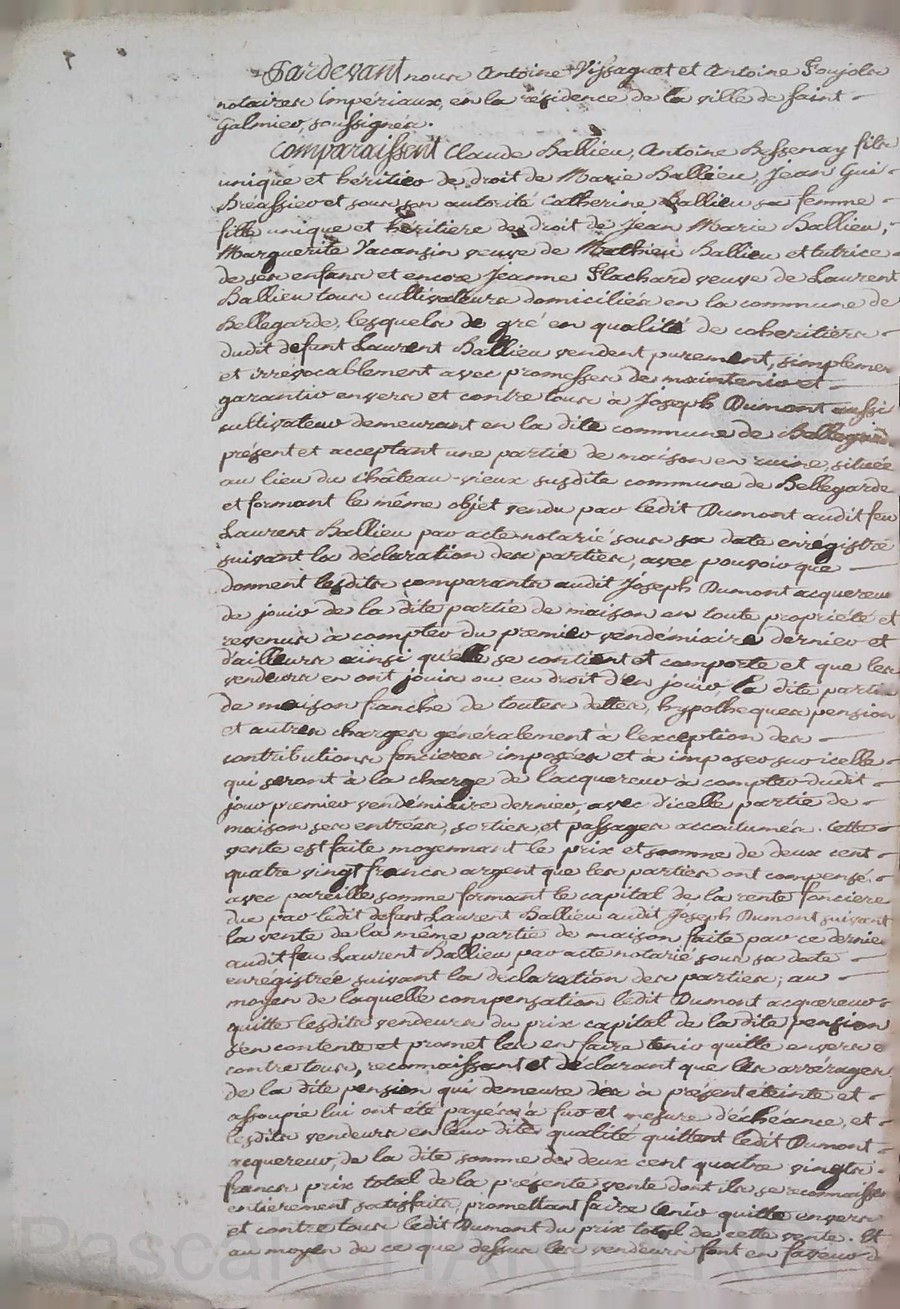 Pardevant nous Antoine Vissaguet et Antoine Soujols
notaires impériaux, en la résidence de la ville de Saint
Galmier, soussignés.
Comparaissent Claude Ballieu, Antoine Bessenay fils
unique et héritier de droit de Marie Ballieu, Jean Gui
Bréassier et sous son autorité Catherine Ballieu sa femme
fille unique et héritiere de droit de Jean Marie Ballieu,
Marguerite Vacansin veuve de Mathieu Ballieu et tutrice
de ses enfans et encore Jeanne Flachard veuve de Laurent
Ballieu tous cultivateurs domiciliés en la commune de
Bellegarde, lesquels de gré en qualité de coheritiers
dudit defunt Laurent Ballieu vendent purement, simplemen
et irrévocablement avec promesses de maintenir et
garantir envers et contre tous à Joseph Dumont aussi
cultivateur demeurant en la dite commune de Bellegarde
présent et acceptant une partie de maison en ruine, située
au lieu du Château-vieux susdite commune de Bellegarde
et formant le même objet vendu par ledit Dumont audit feu
Laurent Ballieu par acte notarié sous sa date enregistré
suivant la déclaration des parties, avec pouvoir que
donnent lesdits comparants audit Joseph Dumont acquereur
de jouir de la dite partie de maison en toute propriété et
revenus à compter du premier vendémiaire dernier et
d'ailleurs ainsi qu'elle se contient et comporte et que les
vendeurs en ont joui ou eu droit d'en jouir, la dite partie
de maison franche de toutes dettes, hypotheques pension
et autres charges généralement à l'exception des
contributions foncieres imposées et à imposer sur icelle
qui seront à la charge de l'acquereur à compter dudit
jour premier vendémiaire dernier, avec d'icelle partie de
maison ses entrées, sorties, et passages accoutumés. Cette
vente est faite moyennant le prix et somme de deux cent
quatre vingt francs argent que les parties ont compensé
avec pareille somme formant le capital de la rente fonciere
due par ledit defunt Laurent Ballieu audit Joseph Dumont suivant
la vente de la même partie de maison faite par ce dernier
audit feu Laurent Ballieu par acte notarié sous sa date
enrégistrée suivant la déclaration des parties; au
moyen de laquelle compensation ledit Dumont acquereur
quitte lesdits vendeurs du prix capital de la dite pension
s'en contente et promet les en faire tenir quitte envers e
contre tous, reconnaissant et déclarant que les arrérages
de la dite pension qui demeure dès à présent éteinte et
assoupie lui ont été payés à fur et mesure d'échéance, et
lesdits vendeurs en leur dite qualité quittent ledit Dumont
acquereur, de la dite somme de deux cent quatre vingts
francs prix total de la présente vente dont ils se reconnaisse
entierement satisfaits, promettant faire tenir quitte envers
et contre tous ledit Dumont du prix total de cette vente. Et
au moyen de ce que dessus les vendeurs font en faveur d
Pascal CHARETRON